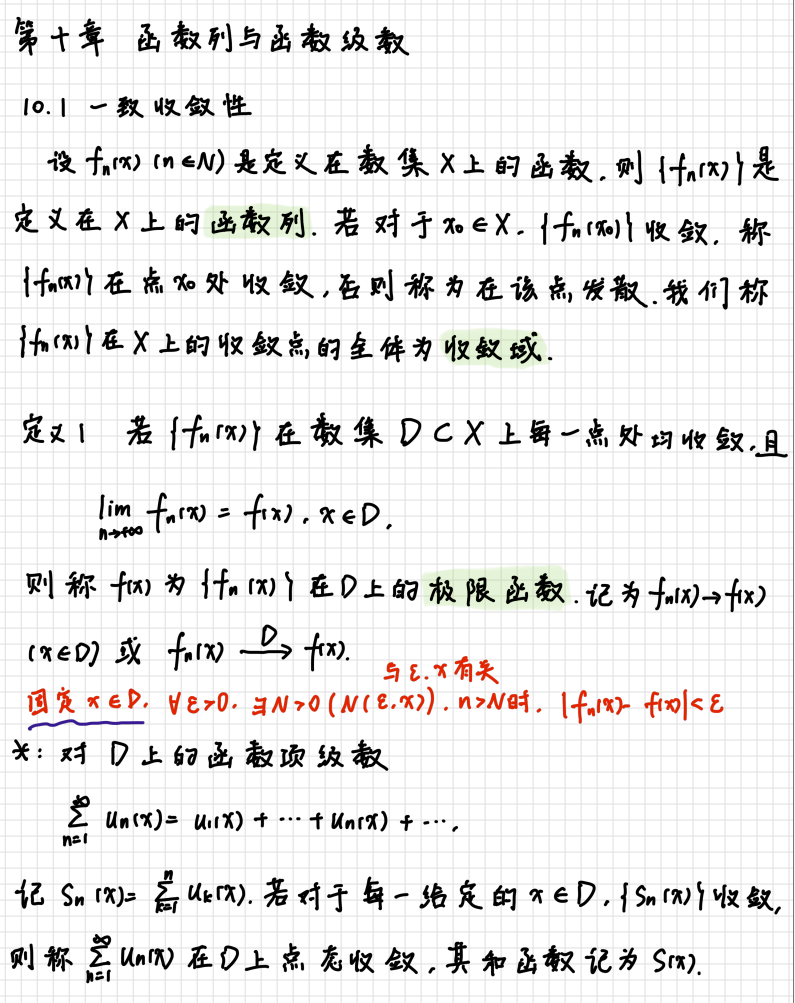 第十章 函数列与函数级数
10.1 一致收敛性
设 fₙ(x) (n∈N) 是定义在数集 X 上的函数, 则 {fₙ(x)} 是
定义在 X 上的函数列. 若对于 x₀∈X, {fₙ(x₀)} 收敛, 称
{fₙ(x)} 在点 x₀ 处收敛, 否则称为在该点发散. 我们称
{fₙ(x)} 在 X 上的收敛点的全体为收敛域.
定义1 若 {fₙ(x)} 在数集 D⊂X 上每一点处均收敛, 且
lim_{n→+∞} fₙ(x) = f(x), x∈D,
则称 f(x) 为 {fₙ(x)} 在 D 上的极限函数. 记为 fₙ(x)→f(x)
(x∈D) 或 fₙ(x) —D→ f(x).
与 ε, x 有关
固定 x∈D, ∀ε>0, ∃N>0 (N(ε,x)), n>N时, |fₙ(x)- f(x)|<ε
*: 对 D 上的函数项级数
∑_{n=1}^{∞} uₙ(x) = u₁(x) + ⋯ + uₙ(x) + ⋯,
记 Sₙ(x) = ∑_{k=1}^{n} uₖ(x). 若对于每一给定的 x∈D, {Sₙ(x)} 收敛,
则称 ∑_{n=1}^{∞} uₙ(x) 在 D 上点态收敛, 其和函数记为 S(x).